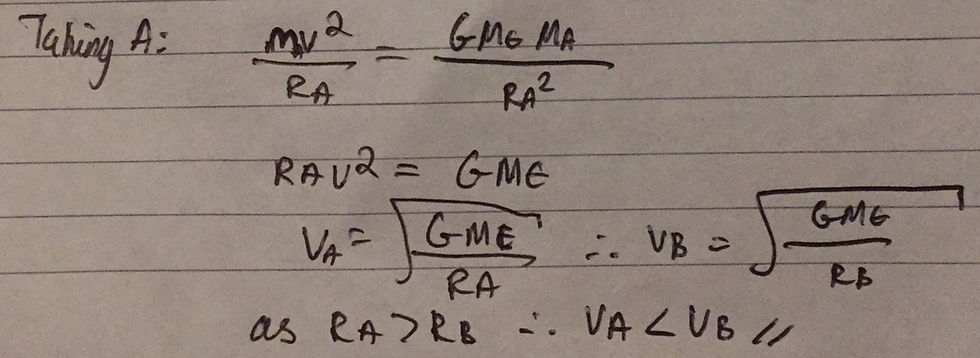 Taking A: mv²/RA = GME MA/RA²
RAV² = GME
VA = √(GME/RA) ∴ VB = √(GME/RB)
as RA > RB ∴ VA < VB //